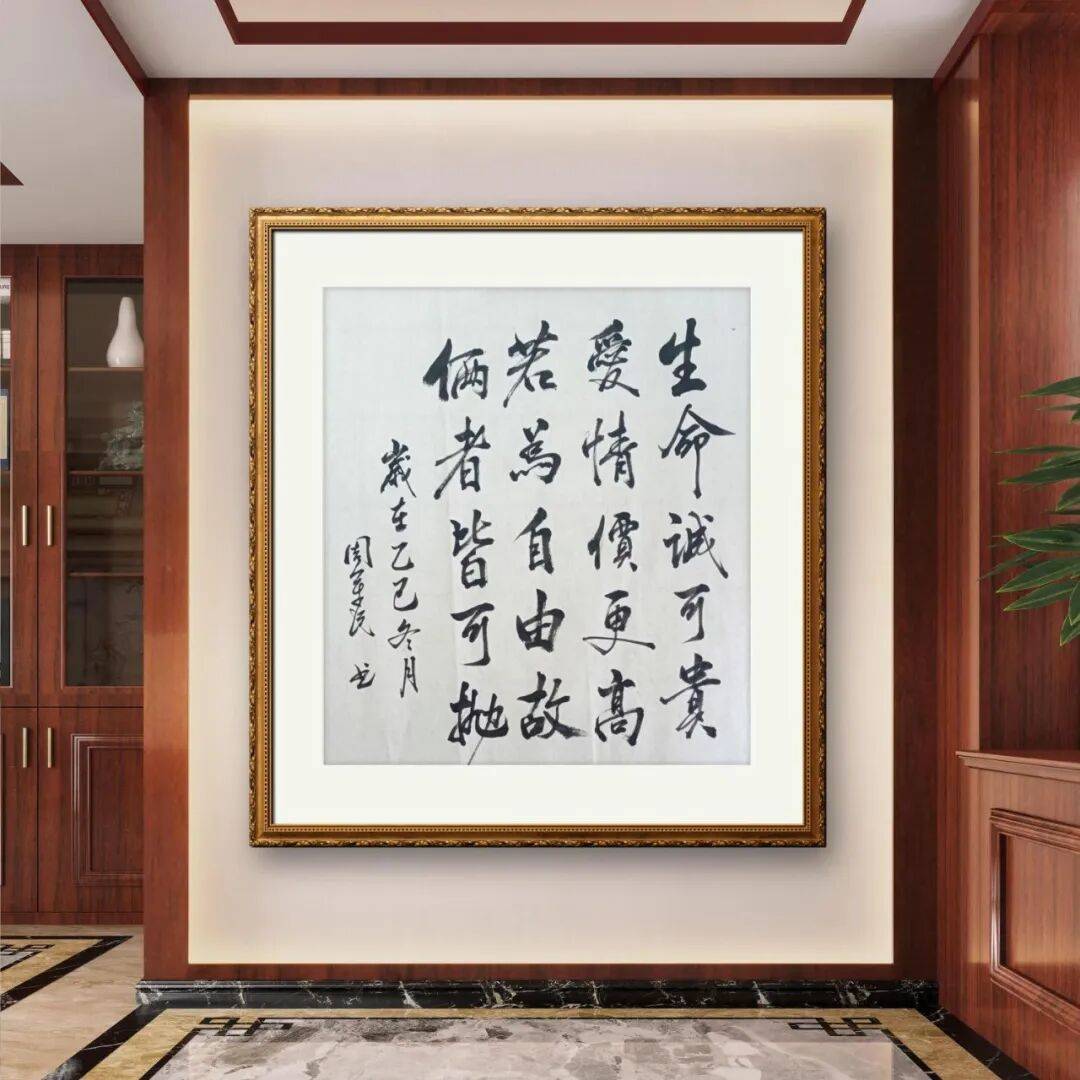 生命誠可貴
愛情價更高
若為自由故
倆者皆可拋
歲在乙巳冬月
周军民书